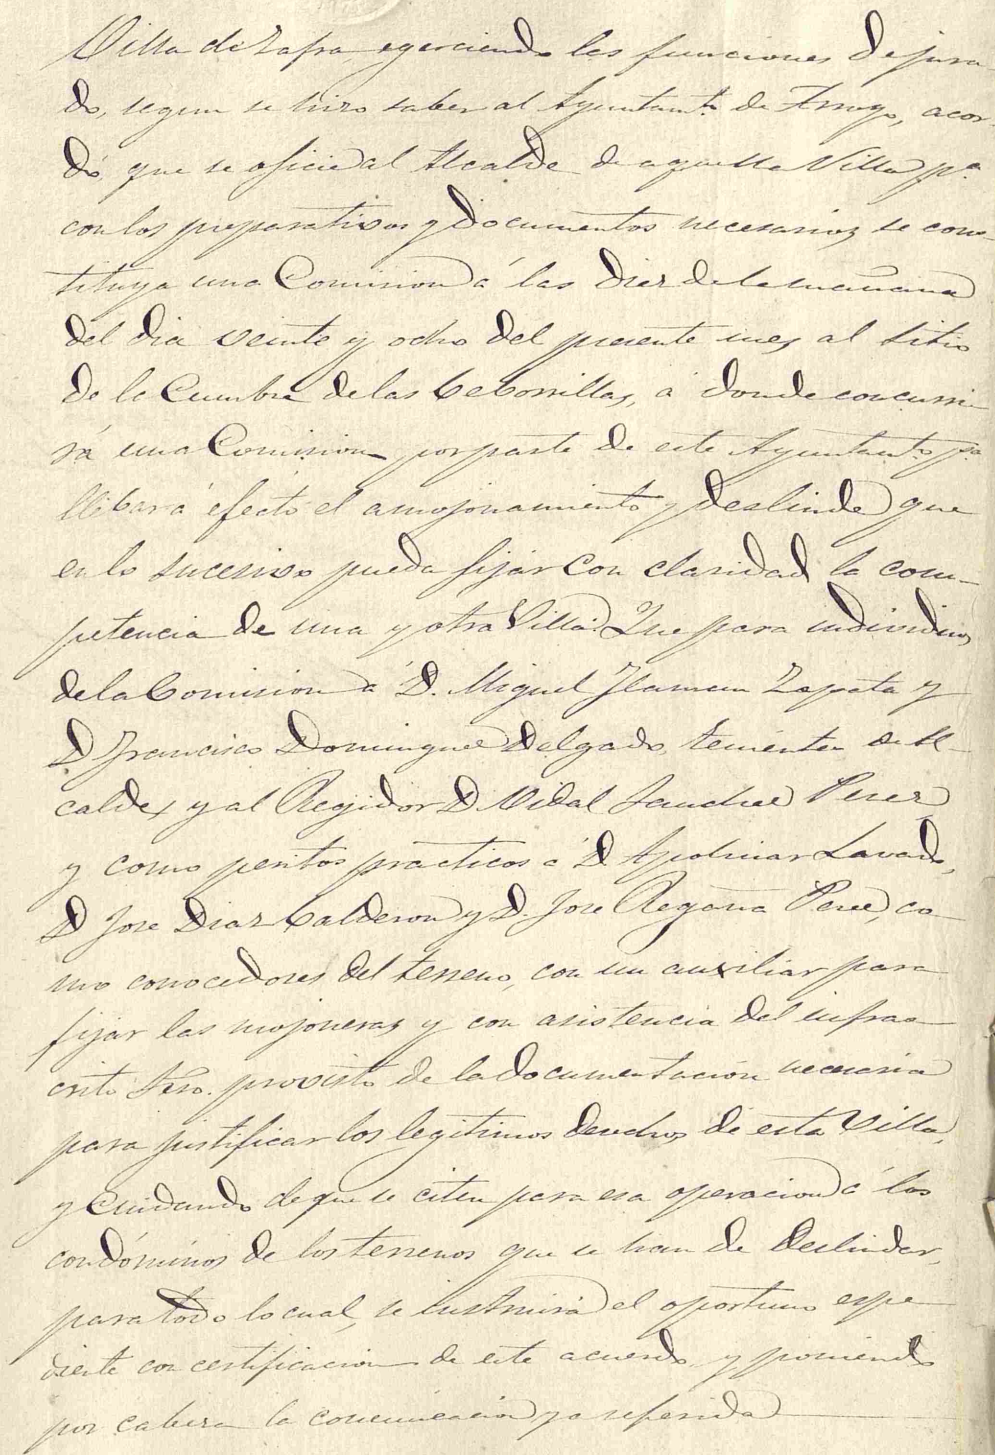 Villa de Zafra egerciendo las funciones de jura-
do, segun se hizo saber al Ayuntamto. de Arroyo, acor-
dó que se oficie al Alcalde de aquella Villa pa.
con los preparativos y documentos necesarios se cons-
tituya una Comision á las diez de la mañana
del dia veinte y ocho del presente mes al sitio
de la Cumbre de las Ceborrillas, á donde concurri-
rá una Comision por parte de este Ayuntamto. pa.
llebar á efecto el amojonamiento y deslinde que
en lo sucesivo pueda fijar con claridad la com-
petencia de una y otra Villa. Que para individuos
de la Comision á D. Miguel Zapata y
D Francisco Dominguez Delgado, tenientes de Al-
caldes y al Regidor D Vidal Sanchez Perez
y como peritos practicos á D Apolinar Lavado,
D Jose Diaz Calderon y D. Jose Regaña Perez, co-
mo conocedores del terreno, con un auxiliar para
fijar las mojoneras y con asistencia del infraes-
crito Srio. provisto de la documentacion necesaria
para justificar los legitimos derechos de esta Villa,
y cuidando de que se citen para esa operacion á los
condóminos de los terrenos que se han de deslindar,
para todo lo cual, se instruirá el oportuno espe-
diente con certificacion de este acuerdo y poniendo
por cabeza la comunicacion ya referida